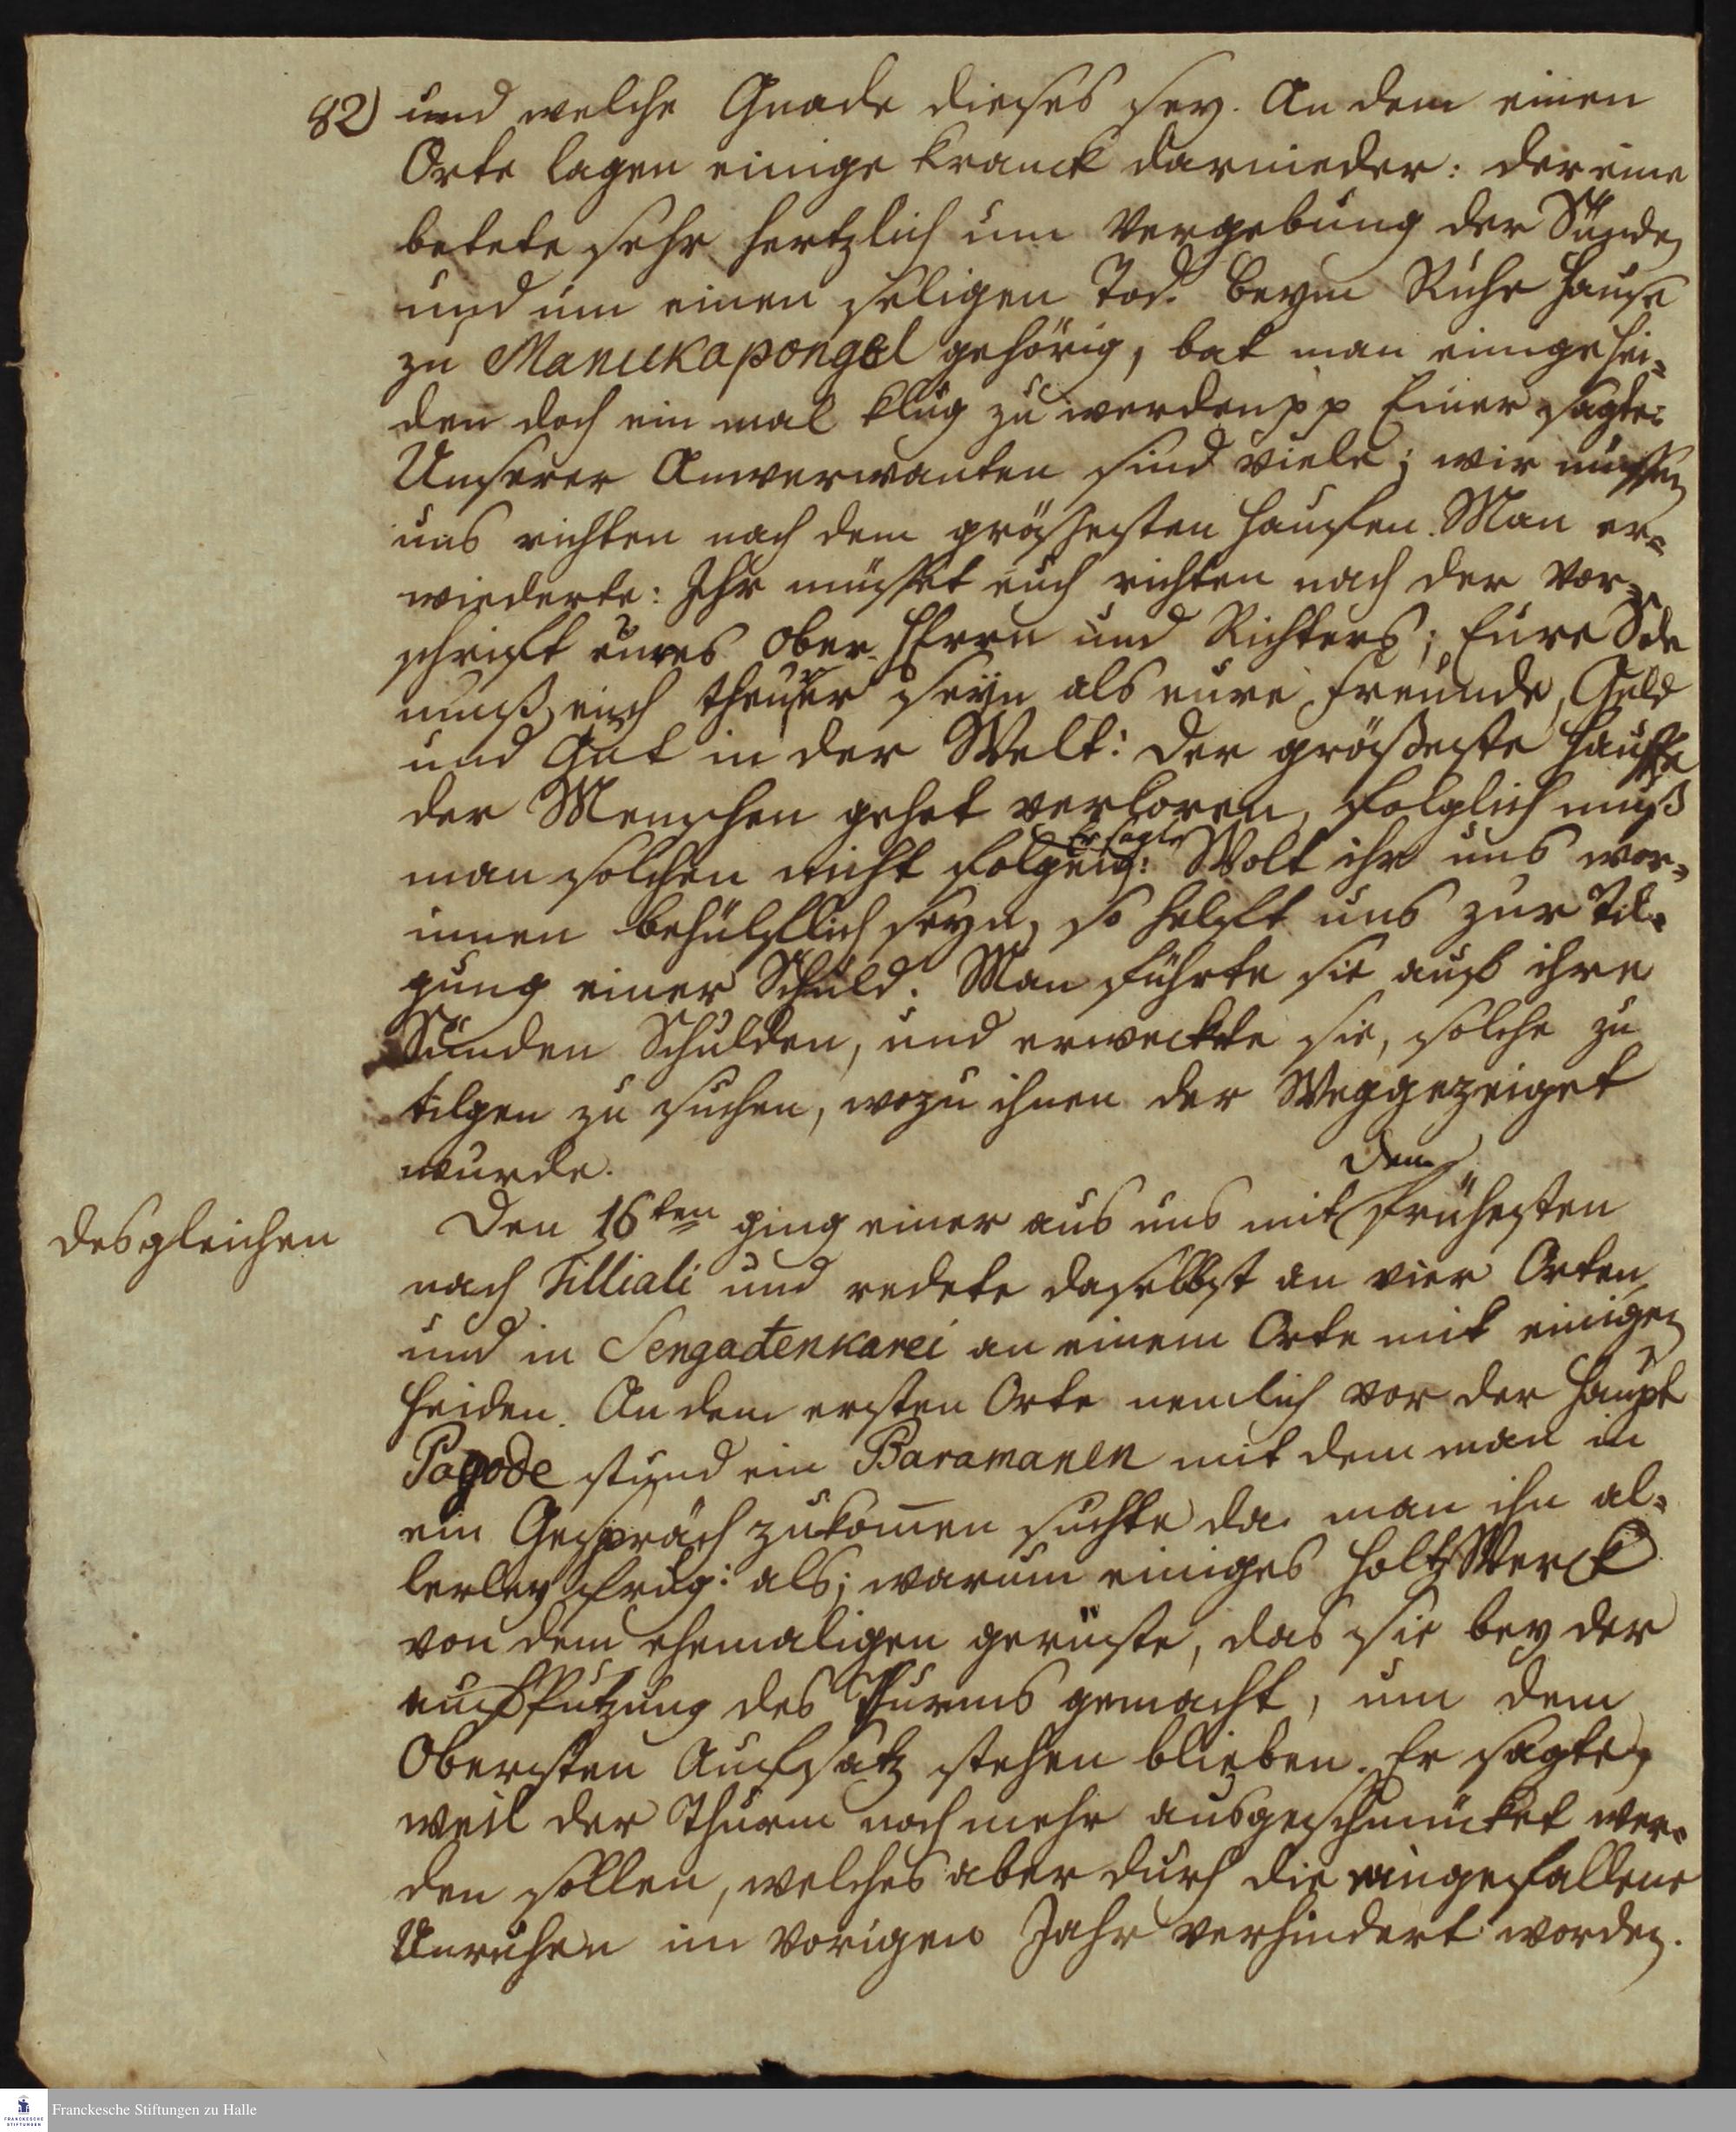 82) und welche Gnade dieses sey. An dem einen
Orte lagen einige kranck darnieder: der eine
betete sehr hertzlich um Vergebung der Sünden
und um einen seligen Tod. Beym Ruhe Hause
zu Manikapongel gehörig, bat man einige Hei-
den doch ein mal klug zu werden pp Einer sagte:
Unserer Anverwanten sind viele; wir müssen
uns richten nach dem grössesten Hauffen. Man er-
wiederte: Ihr müsset euch richten nach der Vor-
schrifft eures Ober-Herrn und Richters; Eure Sele
muß euch theurer seyn als eure Freunde, Geld
und Gut in der Welt: der größeste Hauffe
der Menschen gehet verloren, folglich muß
man solchen nicht folgen: Er sagte Wolt ihr uns wor-
innen behülfflich seyn, so helfft uns zur Til-
gung einer Schuld. Man führte sie auf ihre
Sünden Schulden, und erweckte sie, solche zu
tilgen zu suchen, wozu ihnen der Weg gezeiget
wurde.
desgleichen
Den 16ten ging einer aus uns mit dem frühesten
nach Tilliali und redete daselbst an vier Orten,
und in Sengadenkarei an einem Orte mit einigen
Heiden. An dem ersten Orte nemlich vor der Haupt
Pagode stund ein Baramanen mit dem man in
ein Gespräch zu kom̄en suchte da man ihn al-
lerley frug: als; warum einiges Holtz Werck
von dem ehemaligen gerüste, das sie bey der
aufputzung des Thurms gemacht, um dem
Obersten Aufsatz stehen blieben. Er sagte,
weil der Thurm noch mehr ausgeschmücket wer-
den sollen, welches aber durch die eingefallene
Unruhen im vorigen Jahr verhindert worden.
Franckesche Stiftungen zu Halle